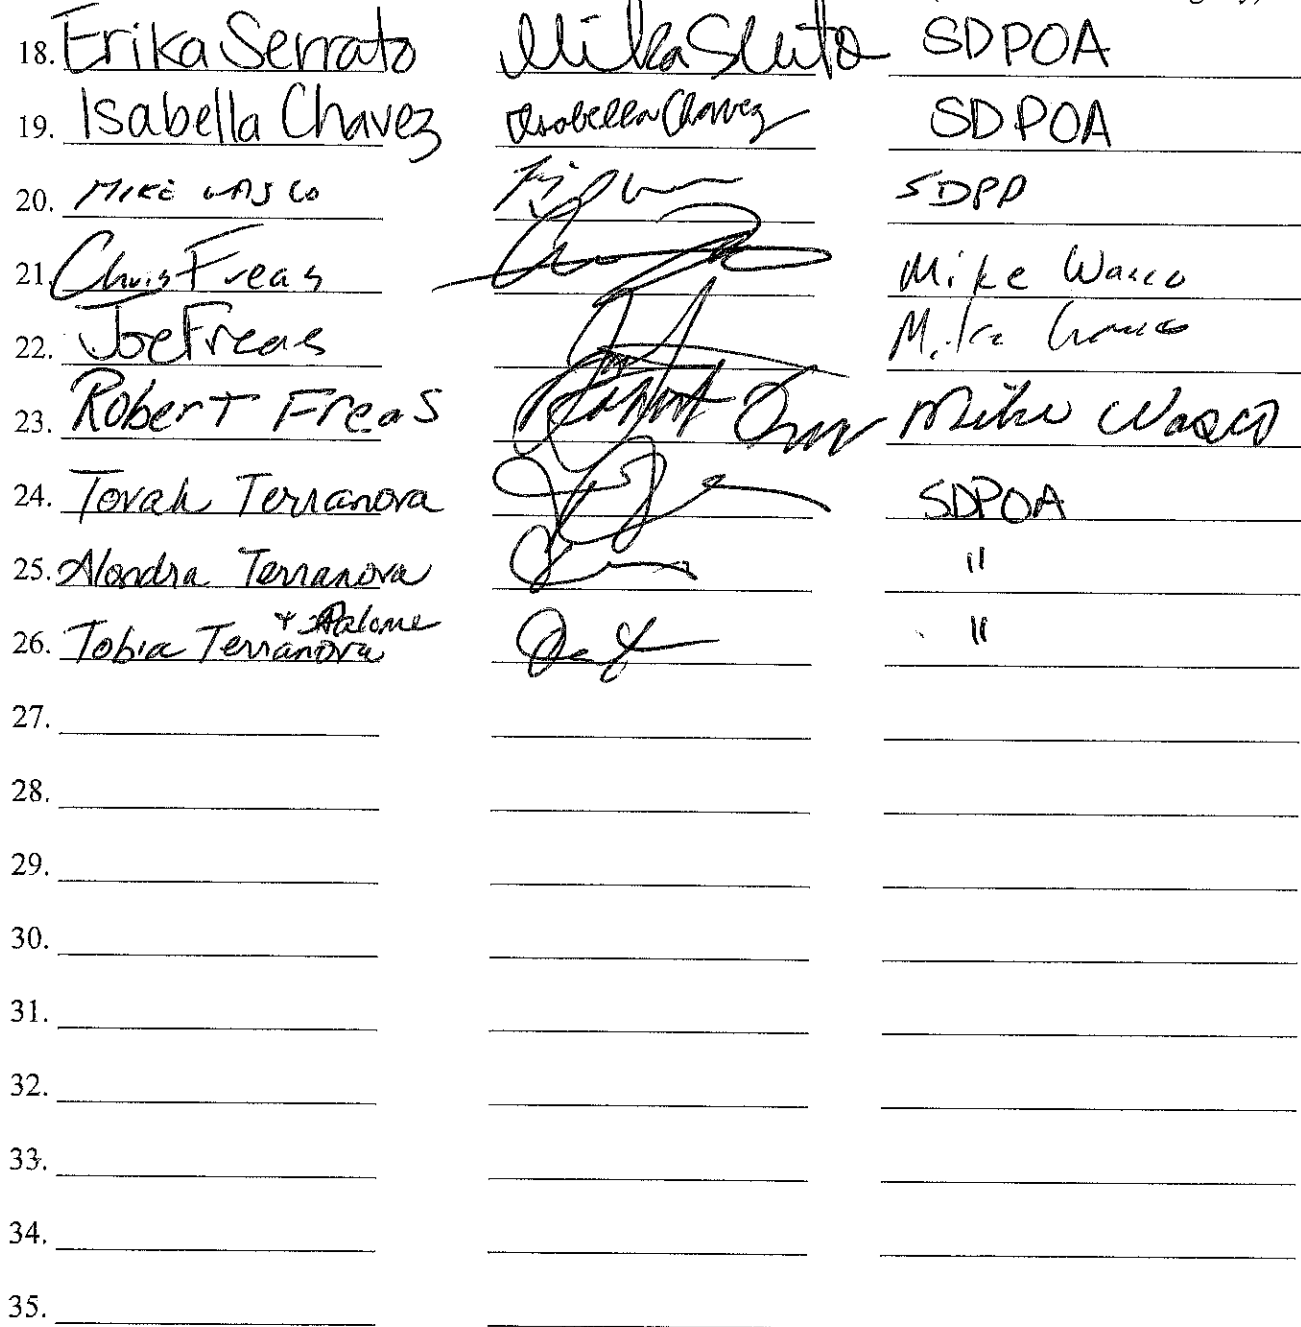 18. Erika Serrato Erika Serrato SDPOA
19. Isabella Chavez Isabella Chavez SDPOA
20. MIKE WASCO SDPD
21. Chris Freas Mike Wasco
22. Joe Freas Mike Wasco
23. Robert Freas Robert Mike Wasco
24. Tovah Terranova SDPOA
25. Alondra Terranova "
+ Palome
26. Tobia Terranova "
27.
28.
29.
30.
31.
32.
33.
34.
35.